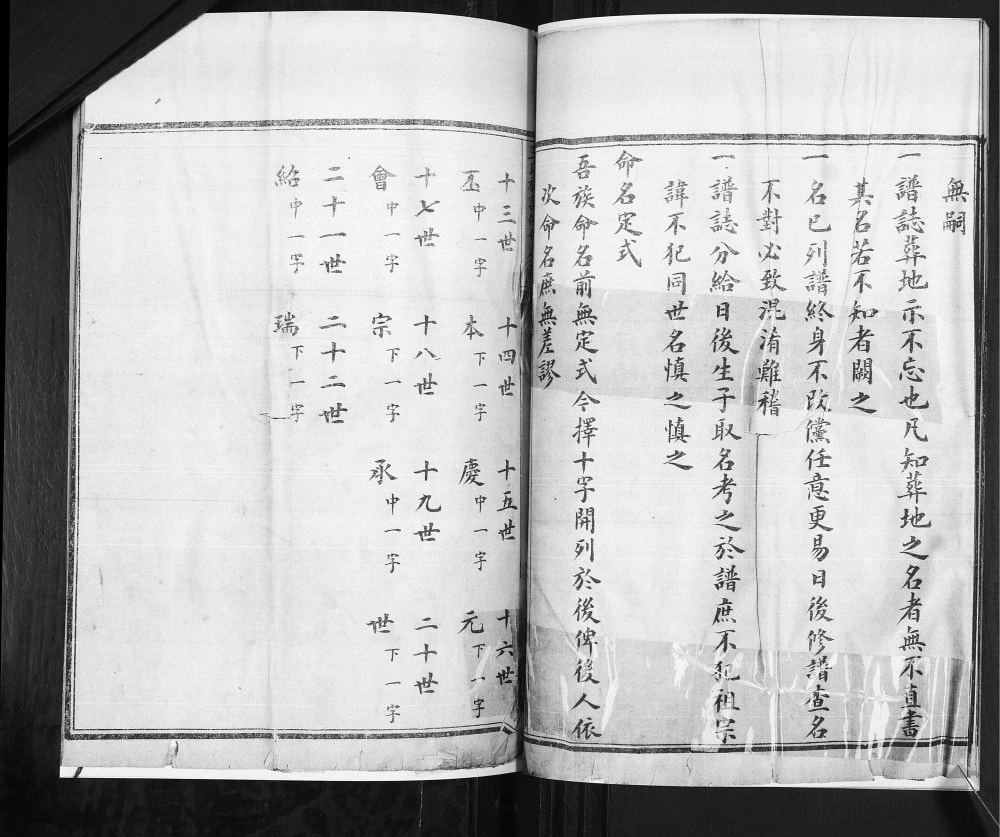 無嗣
一譜誌葬地示不忘也凡知葬地之名者無不直書
其名若不知者闕之
一名已列譜終身不改儻任意更易日後修譜查名
不對必致混淆難稽
一譜誌分給日後生子取名考之於譜庶不犯祖宗
諱不犯同世名慎之慎之
命名定式
吾族命名前無定式今擇十字開列於後俾後人依
次命名庶無差謬
十三世 十四世 十五世 十六世
丕中一字 本下一字 慶中一字 元下一字
十七世 十八世 十九世 二十世
會中一字 宗下一字 承中一字 世下一字
二十一世 二十二世
紹中一字 瑞下一字